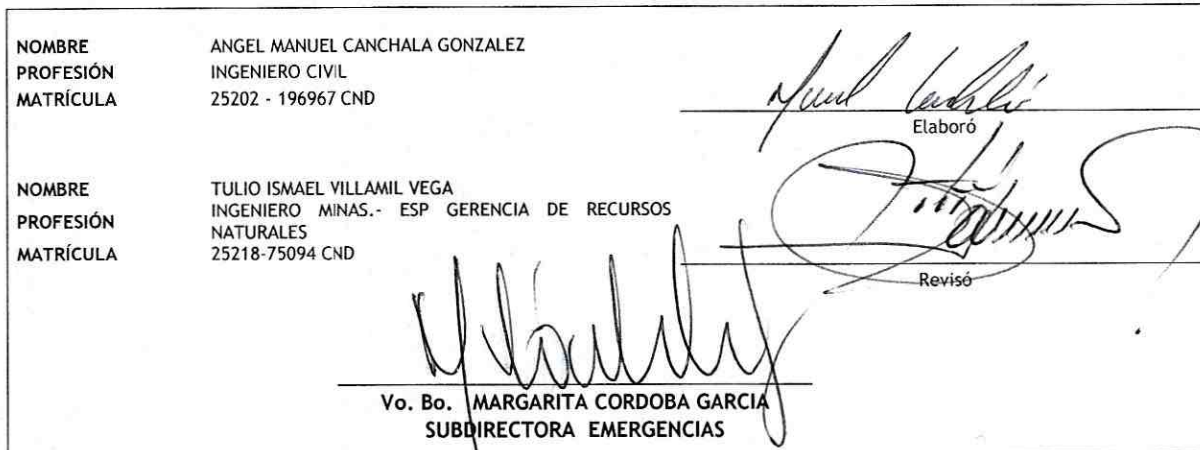 NOMBRE ANGEL MANUEL CANCHALA GONZALEZ
PROFESIÓN INGENIERO CIVIL
MATRÍCULA 25202 - 196967 CND
Elaboró
NOMBRE TULIO ISMAEL VILLAMIL VEGA
PROFESIÓN INGENIERO MINAS.- ESP GERENCIA DE RECURSOS
NATURALES
MATRÍCULA 25218-75094 CND
Revisó
Vo. Bo. MARGARITA CORDOBA GARCIA
SUBDIRECTORA EMERGENCIAS